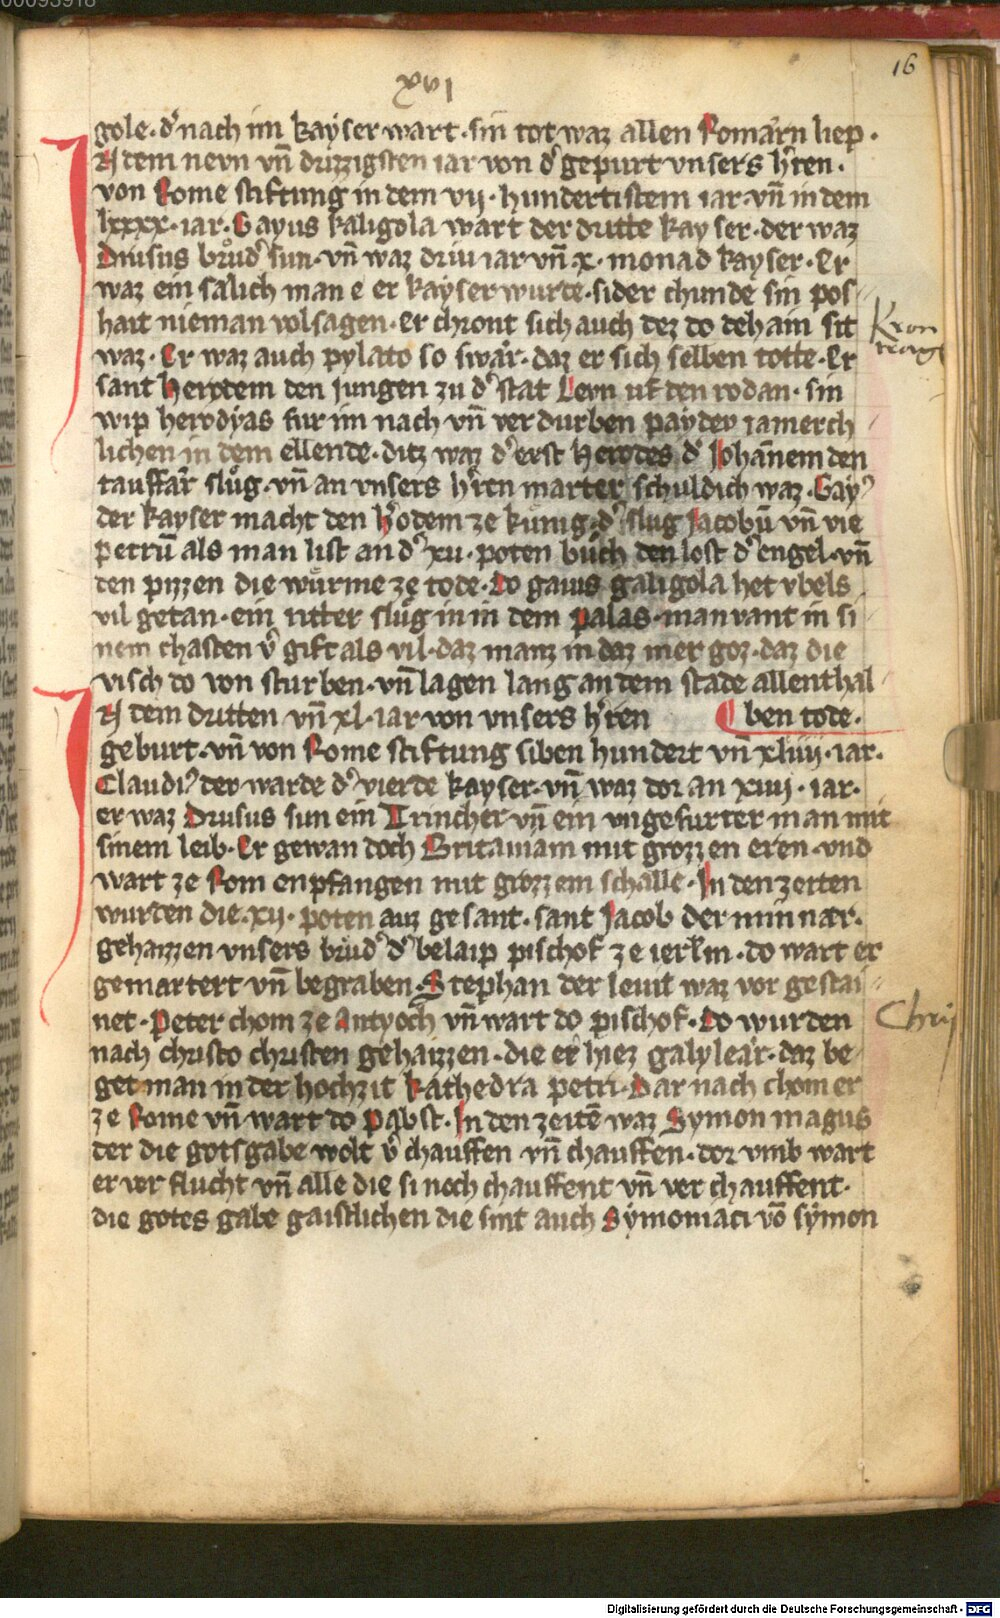 00093918
16
xvi
gole · dˀ nach im kayser wart · sin tot waz allen Romarn liep ·
IN dem nevn vn̄ drizzigsten iar von dˀ gepurt vnsers hˀren ·
von Rome stiftung in dem vij · hundertistem iar · vn̄ in dem
lxxxx · iar · Gayus kaligola wart der dritte kayser · der waz
Drusus brůdˀ sun · vn̄ waz driu iar vn̄ x · monad kayser · Er
waz ein sälich man e er kayser wurde · sider chunde sin pos
hait nieman volsagen · er chront sich auch dez do dehain sit
Kron
waz · Er waz auch pylato so swär · daz er sich selben totte · Er
sant Herodem den jungen zu dˀ stat Levn uf den rodan · sin
wip herodyas fur im nach vn̄ verdurben payder iamerch
lichen in dem ellende · ditz waz dˀ erst Herodes dˀ Johānem den
tauffär slůg · vn̄ an vnsers hˀren marter schuldich waz · Gayˀ
der kayser macht den hˀodem ze kunig · dˀ slug Jacobū vn̄ vie
petrū als man list an dˀ xii · poten bůch den lost dˀ engel · vn̄
den pizzen die würme ze tode · Do gaius galigola het vbels
vil getan · ein ritter slůg in in dem palas · man vant in si
nem chasten vˀ gift als vil · daz manz in daz mer goz · daz die
visch do von sturben · vn̄ lagen lang an dem stade allenthal
IN dem dritten vn̄ xl · iar von vnsers hˀren ben tode ·
geburt · vn̄ von Rome stiftung siben hundert vn̄ xliiij · iar ·
Claudiˀ der warde dˀ vierde kayser · vn̄ waz dor an xiiij · iar ·
er waz Drusus sun ein Trincher vn̄ ein vngefurter man mit
sinem leib · Er gewan doch Britaniam mit grozzen eren · vnd
wart ze Rom enpfangen mit grozzem schalle · In den zeiten
wurden die · xij · poten auz gesant · sant Jacob der minnar ·
gehaizzen vnsers brůdˀ dˀ belaip pischof ze ierlm · do wart er
gemartert vn̄ begraben · Stephan der leuit waz vor gestai
net · Peter chom ze Antyoch vn̄ wart do pischof · Do wurden
Chrij
nach christo christen gehaizzen · die er hiez galylear · daz be
get man in der hochzit kathedra petri · Dar nach chom er
ze Rome vn̄ wart do pabst · In den zeitē waz Symon magus
der die gotsgabe wolt vˀ chauffen vn̄ chauffen · dor vmb wart
er ver flucht vn̄ alle die si noch chauffent vn̄ verchauffent ·
die gotes gabe gaistlichen die sint auch Symoniaci vō symon
Digitalisierung gefördert durch die Deutsche Forschungsgemeinschaft - DFG